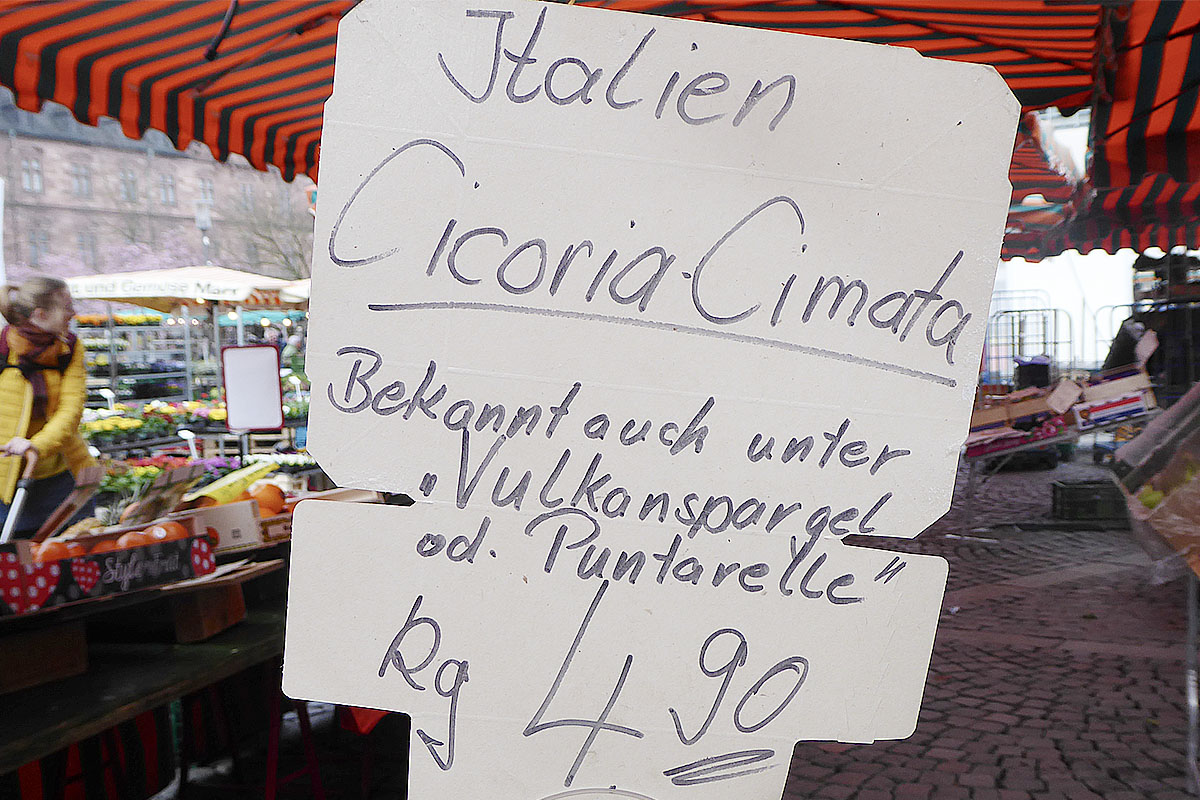 Italien
Cicoria-Cimata
Bekannt auch unter
„Vulkanspargel
od. Puntarelle"
Kg 4 90
und Gemüse Marr